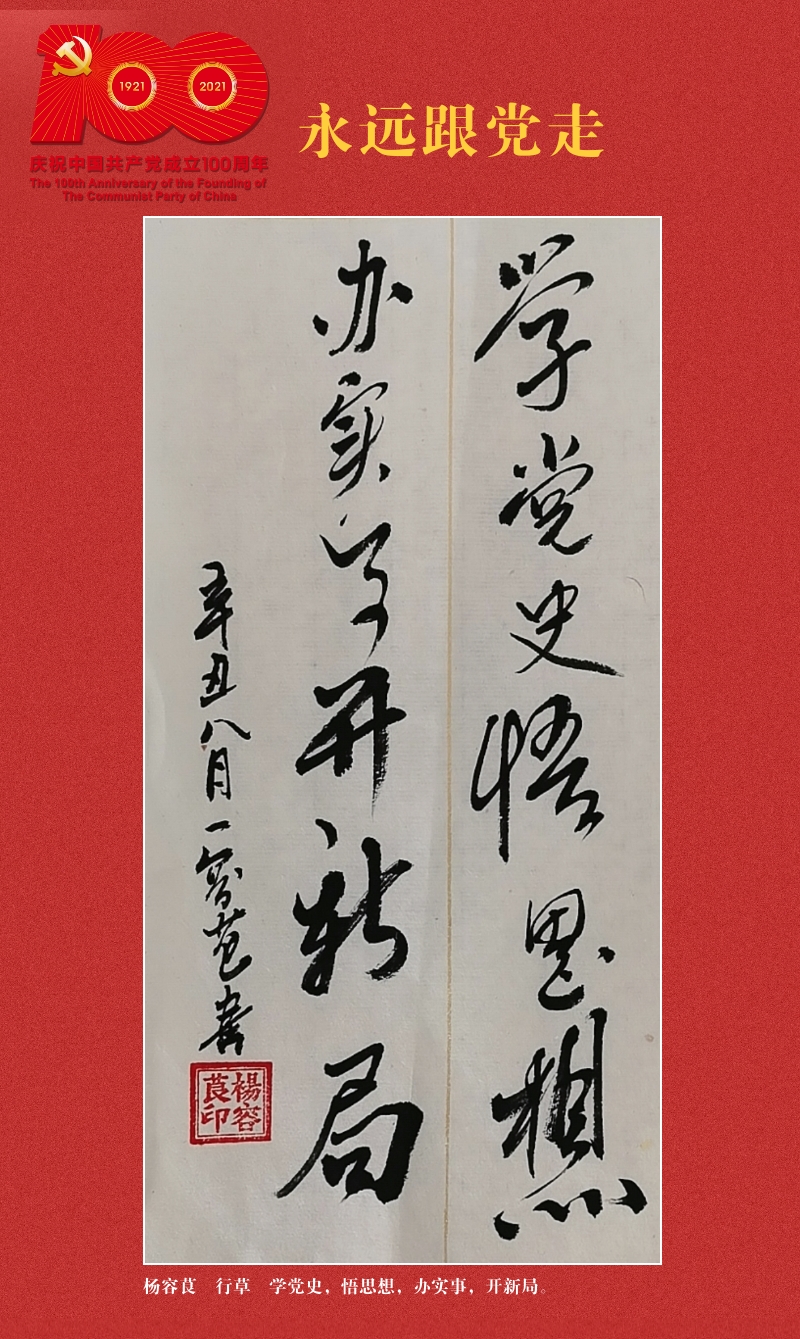 1921
2021
庆祝中国共产党成立100周年
The 100th Anniversary of the Founding of
The Communist Party of China
永远跟党走
学党史悟思想
办实事开新局
辛丑八月一容茛书
楊容茛印
杨容茛 行草 学党史，悟思想，办实事，开新局。